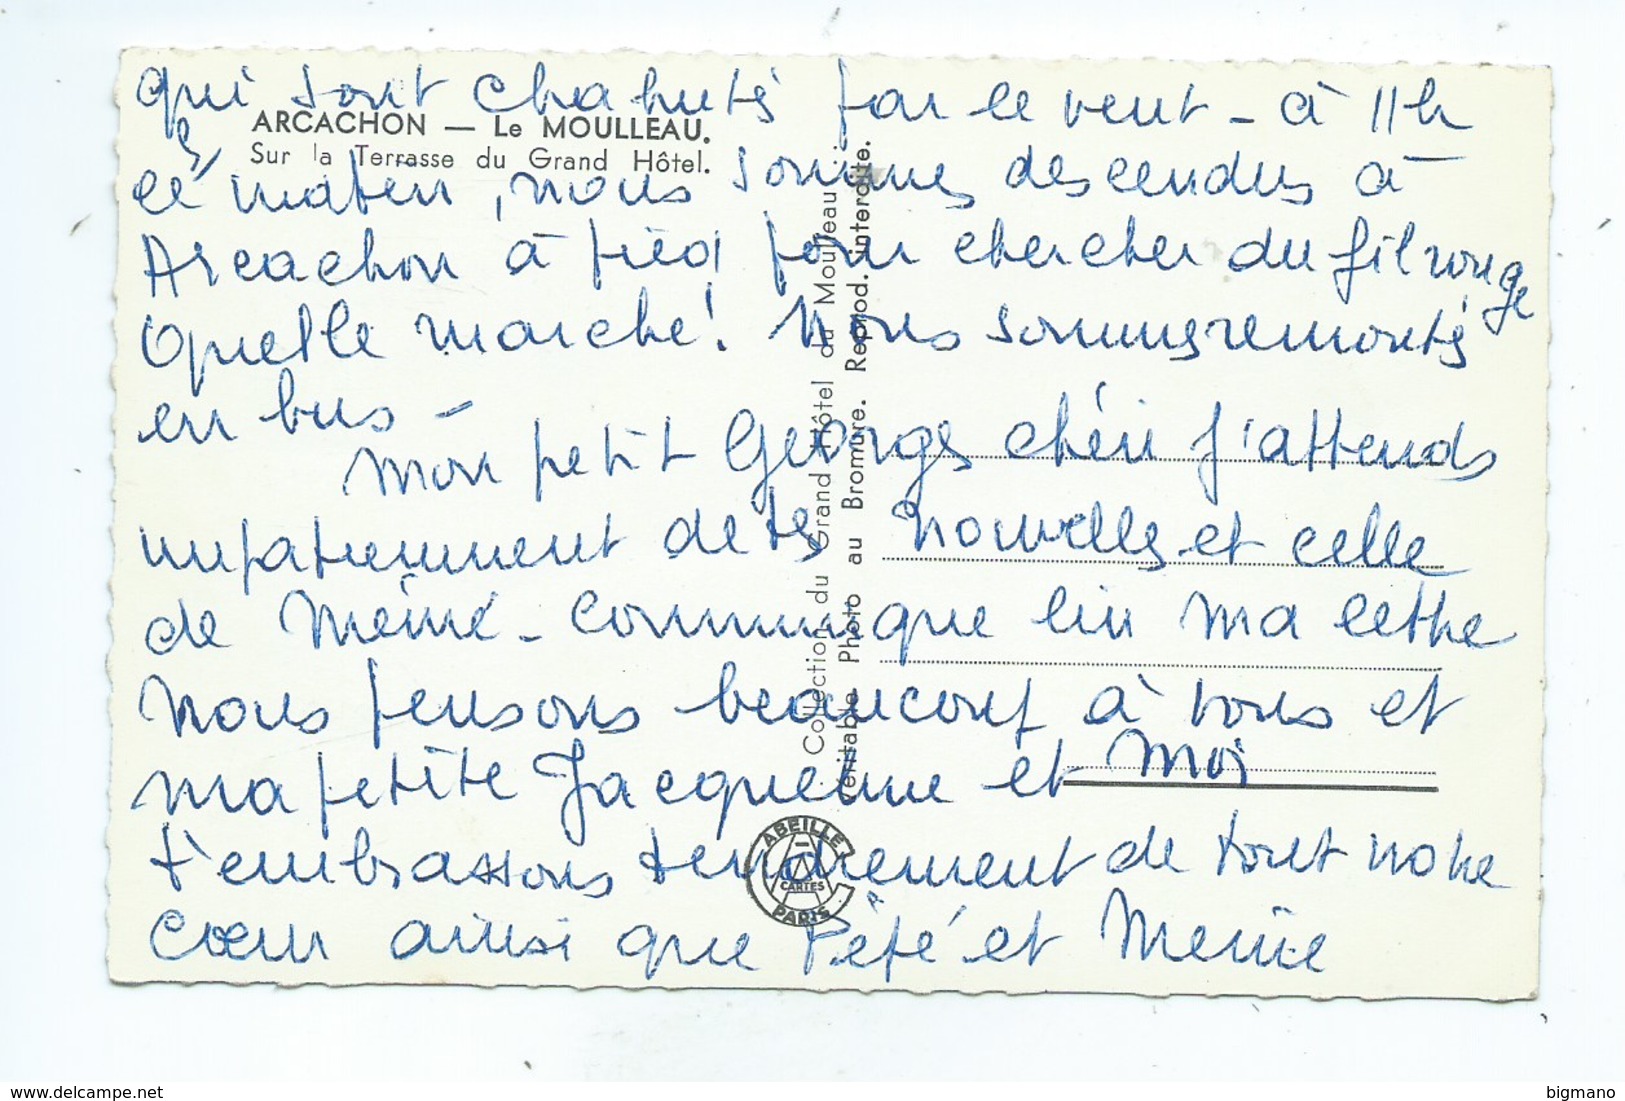 qui sont chahutés par le vent - à 11h
ARCACHON — Le MOULLEAU.
Sur la Terrasse du Grand Hôtel.
ce matin, nous sommes descendus à
Arcachon à pied pour chercher du fil rouge
Quelle marche! Nous sommes remontés
en bus -
Mon petit Georges chéri j'attends
impatiemment de tes nouvelles et celle
de Mémé - communique lui ma lettre
Nous pensons beaucoup à vous et
ma petite Jacqueline et moi
t'embrassons tendrement de tout notre
cœur ainsi que Pépé et Mémé
Collection du Grand Hôtel du Moulleau
Véritable Photo au Bromure. Reprod. interdite.
ABEILLE
CARTES
PARIS
delcampe.net
bigmano